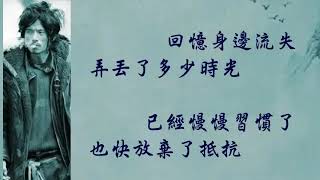 回憶身邊流失
弄丟了多少時光
已經慢慢習慣了
也快放棄了抵抗